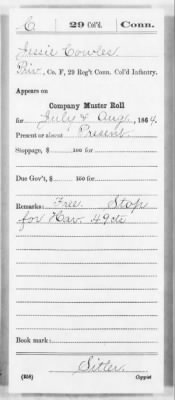 C | 29 Col'd. | Conn.
Jessie Cowles
Priv., Co. F, 29 Reg't Conn. Col'd Infantry.
Appears on
Company Muster Roll
for July & Aug, 1864.
Present or absent Present.
Stoppage, $ 100 for
Due Gov't, $ 100 for
Remarks: Free. Stop
for Hav. 49cts
Book mark:
Sitler.
(858) Copyist.